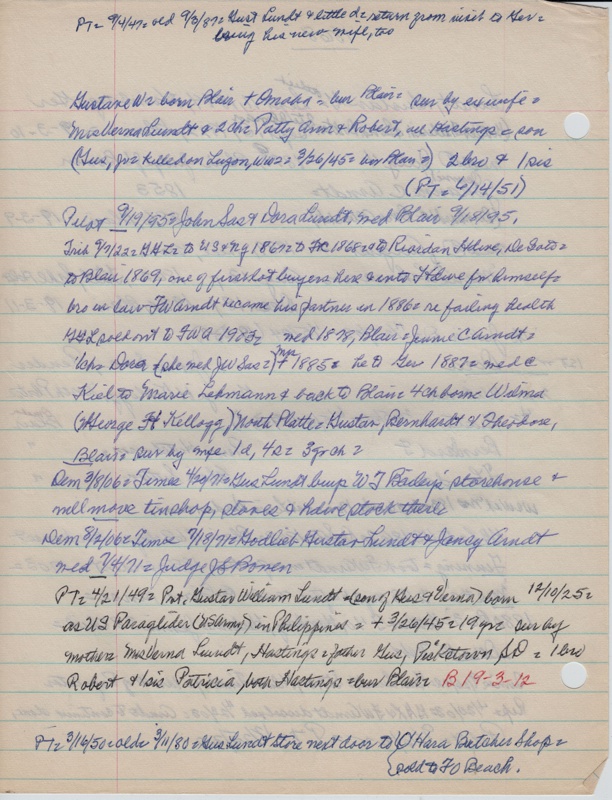 PT= 9/4/47= old 9/3/87= Gust Lundt & little d= return from visit to Ger=
bring his new wife, too
Gustave W= born Blair + Omaha= bur Blair= sur by ex wife=
Mrs Verna Lundt & 2 ch= Patty Ann & Robert, all Hastings= son
(Gus, Jr= killed on Luzon, WW2= 3/26/45= bur Blair=) 2 bro & 1 sis
(PT= 6/14/51)
Pilot 9/19/95= John Sas & Dora Lundt, med Blair 9/18/95,
Trib 9/7/22= GHL= to US & NY 1867= to FC 1868= to Riordan Hdwe, De Soto=
to Blair 1869, one of first lot buyers here & into Hdwe for himself=
bro in law FW Arndt became his partner in 1886= re failing health
GHL sold out to FWA 1903= med 1878, Blair= Jennie C Arndt=
1 ch= Dora (she med JW Sas=) + 1885= he to Ger 1887= med @
Kiel to Marie Lehmann & back to Blair= 4 ch borne Welma
(George H Kellogg) North Platte= Gustav Bernhardt & Theodore,
Blair= sur by wife 1d, 4s= 3 gr ch=
Dem 3/8/06= Times 4/20/71= Gus Lundt buys WT storehouse &
will move tinshop, stoves & hdwe stock there
Dem 8/2/06= Times 7/18/71= Godlieb Gustav Lundt & Jancy Arndt
wed 7/4/71= Judge JS Bowen
PT= 4/21/49= Pvt. Gustav William Lundt (son of Gus & Verna) born 12/10/25=
as US Paraglider (US Army) in Philippines= + 3/26/45= 19 yrs sur by
mother= Mrs Verna Lundt, Hastings= father Gus, SD= 1 bro
Robert & sis Patricia, Hastings= bur Blair= B 19-3-12
PT= 3/16/50= old= 3/11/80= Gus Lundt store next door to O'Hara Butcher Shop=
sold to FO Beach.